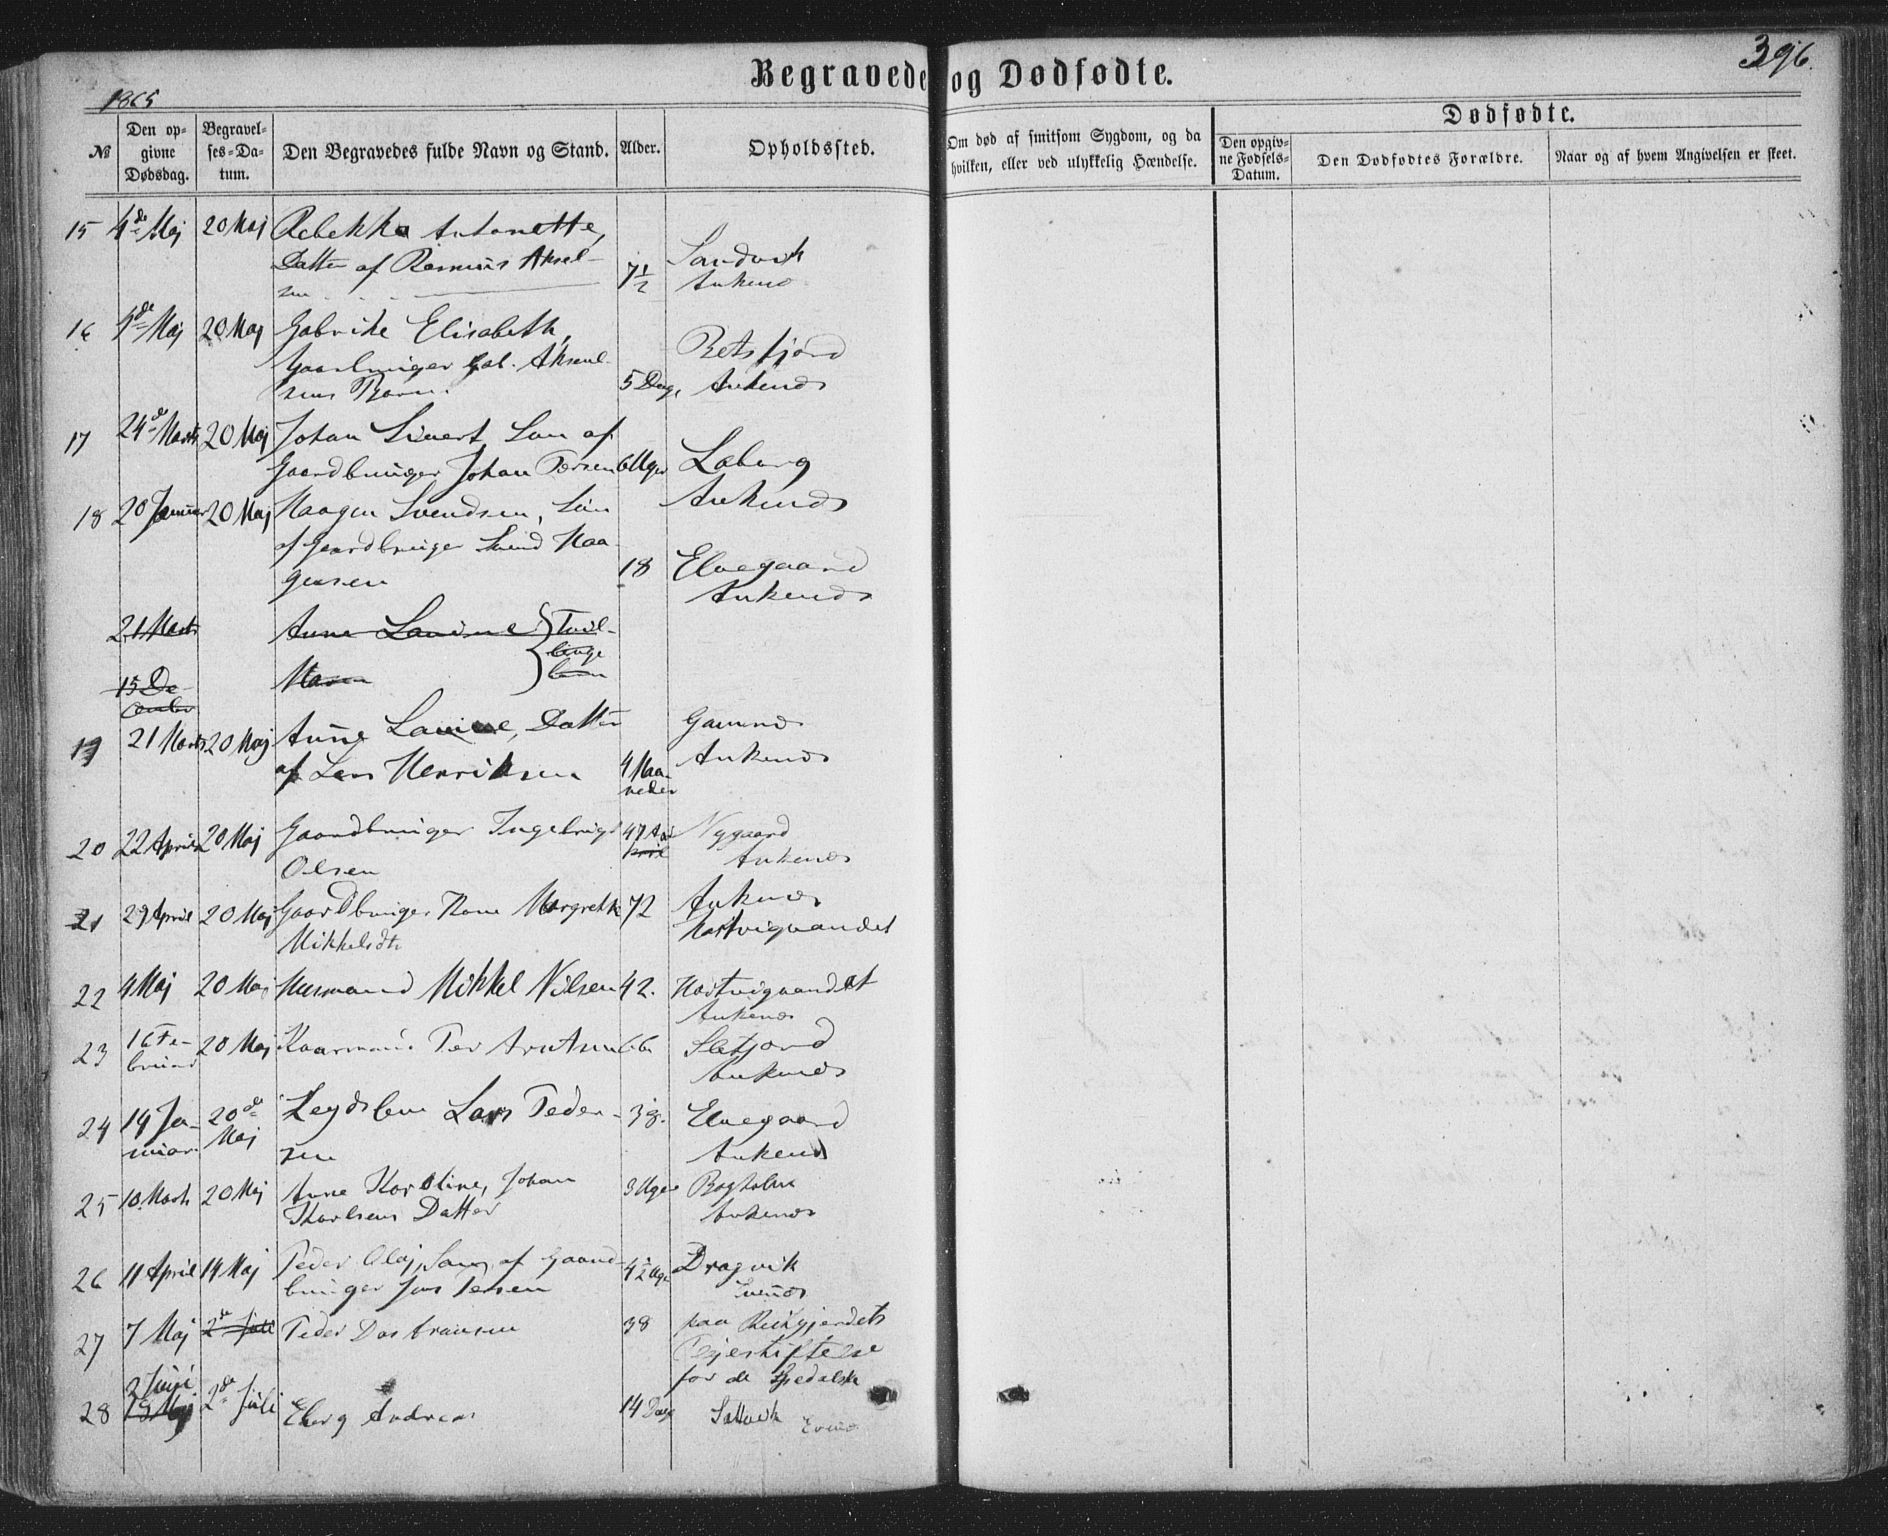 396.
Begravede og Dødfødte.
1865
Dødfødte.
№
Den op-
givne
Dødsdag.
Begravel-
ses-Da-
tum.
Den Begravedes fulde Navn og Stand.
Alder.
Opholdssted.
Om død af smitsom Sygdom, og da
hvilken, eller ved ulykkelig Hændelse.
Den opgiv-
ne Fødsels-
Datum.
Den Dødfødtes Forældre.
Naar og af hvem Angivelsen er skeet.
15 4de Maj 20 Maj Rebekka Antonette,
Datter af Rasmus Aksel- 7½ Sandvik
sen Ankenes
16 Maj 20 Maj Elisabeth,
Gab. Aksel- 5 Dage Ankenes
sens Barn.
17 24de Marts 20 Maj Johan Sivert, Søn af
Gaardbruger Johan 6 Uger Laberg
Ankenes
18 20 Januar 20 Maj Haagen Svendsen, Søn
af Gaardbruger Svend Haa-
gensen 18 Elvegaard
Ankenes
21 Marts Anne Lavine Tvil-
linge
15 De- børn
cember
19 21 Marts 20 Maj Anne Lavine, Datter
af Lars Henriksen 4 Maa- Ankenes
neder
20 22 April 20 Maj Gaardbruger Ingebrigt 47 Nygaard
Olsen Ankenes
21 29 April 20 Maj Gaardbruger Kone Margrethe 72 Ankenes
Mikkelsdtr Hartvigvandet
22 4 Maj 20 Maj Husmand Mikkel Nilsen 42. Hartvigvandet
Ankenes
23 16 Fe- 20 Maj Kaarmand Per 66
bruar Ankenes
24 14 Ja- 20de Lægdslem Lars Peder- 38. Elvegaard
nuar Maj sen Ankenes
25 10. Marts 20 Maj Anne Karoline, Johan 3 Uger
Karlsens Datter Ankenes
26 11 April 14 Maj Peder Olaj, Søn af Gaard- 4½ Uge Dragvik
bruger Jens
27 7 Maj 2de Juli Peder 38 paa Reitgjerdets
Plejestiftelse
for de Spedalske
28 2 Juni 2de Juli Andreas 14 Dage